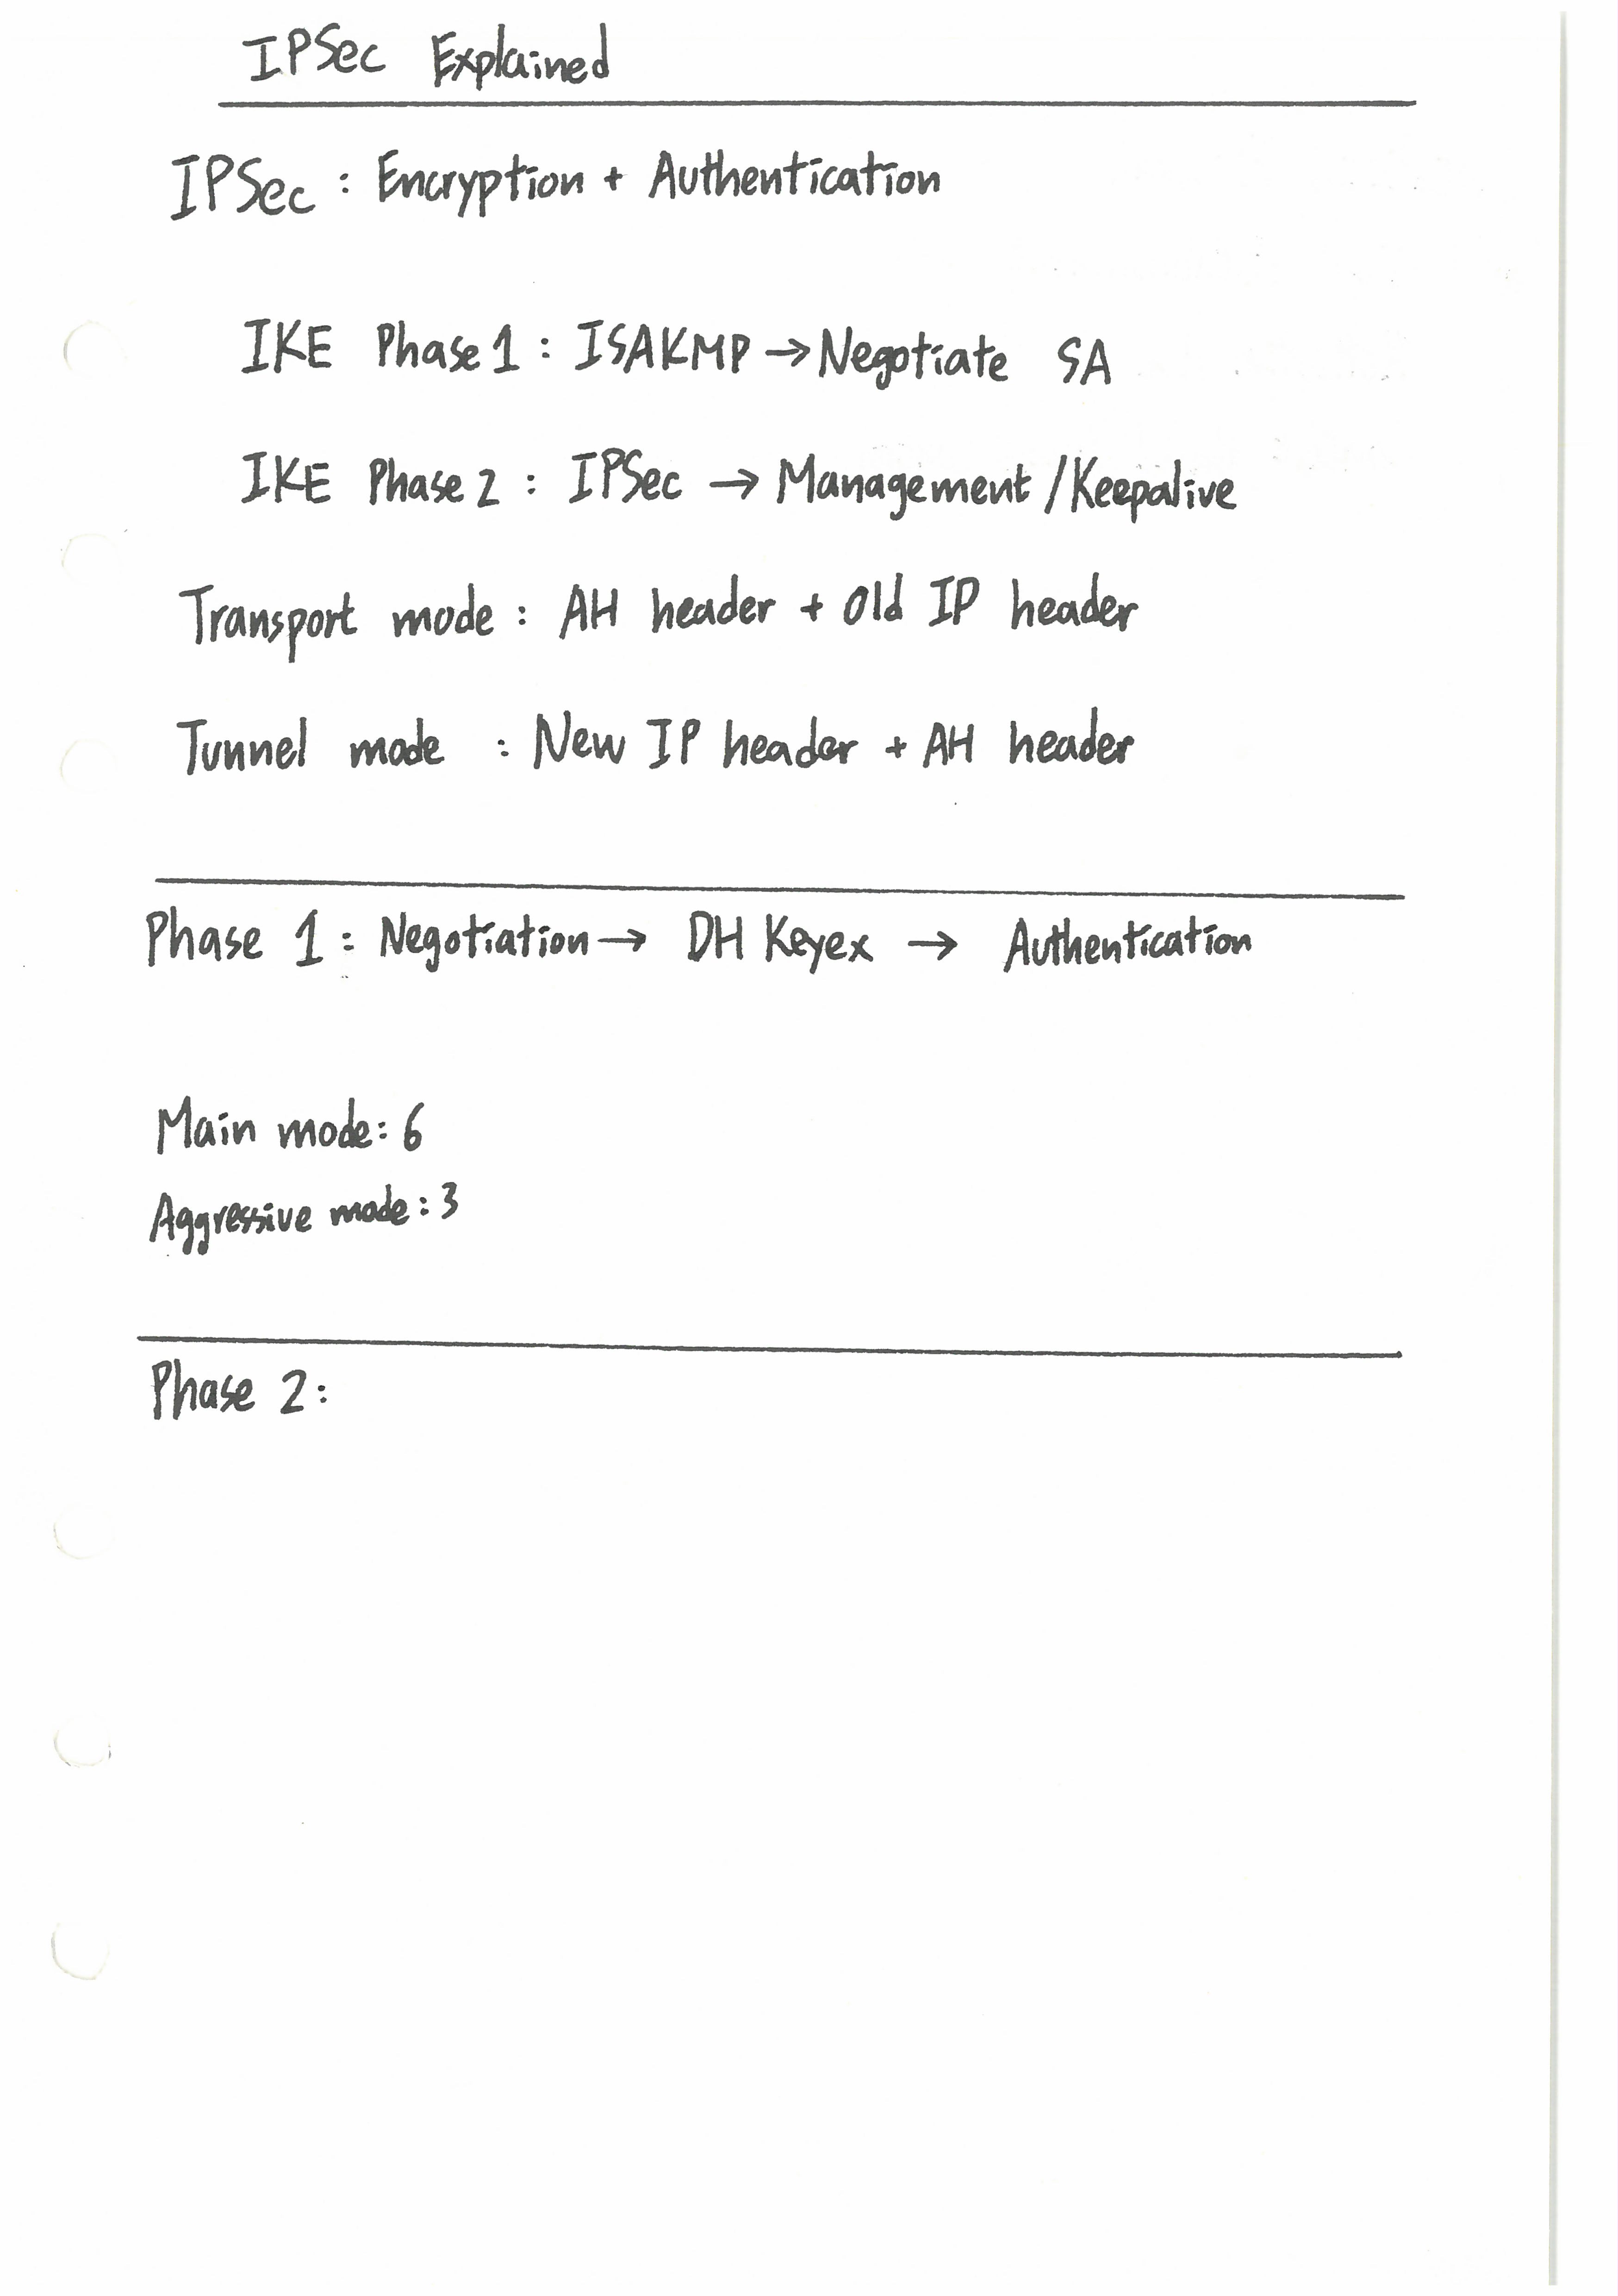 IPSec Explained
IPSec : Encryption + Authentication
IKE Phase 1 : ISAKMP → Negotiate SA
IKE Phase 2 : IPSec → Management / Keepalive
Transport mode : AH header + Old IP header
Tunnel mode : New IP header + AH header
Phase 1 : Negotiation → DH Keyex → Authentication
Main mode: 6
Aggressive mode: 3
Phase 2: